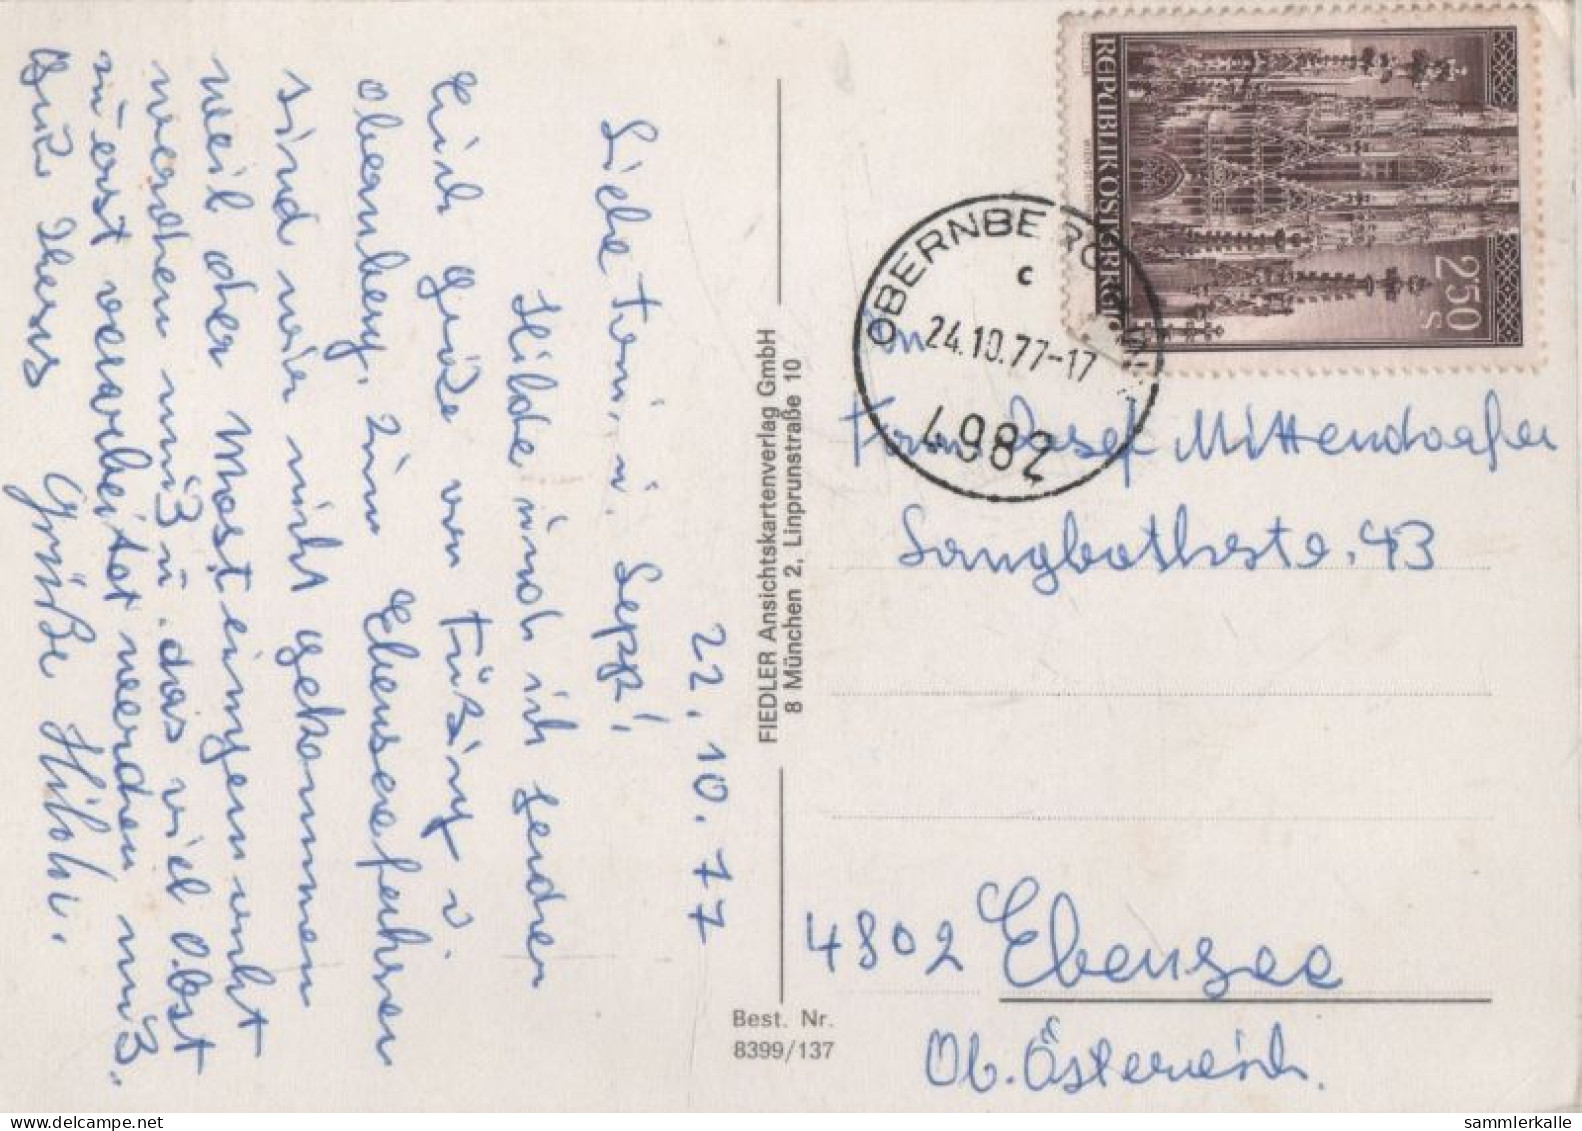 22.10.77
Liebe Toni, u. Sepp!
Hilde und ich senden
Euch Grüße von Füßing u.
Obernberg. Zum Ebensee fahren
sind wir nicht gekommen
weil der Most eingemacht
werden muß u. das viel Obst
zuerst verarbeitet werden muß.
Gute
Grüße Hilde.
FIEDLER Ansichtskartenverlag GmbH
8 München 2, Linprunstraße 10
Best. Nr.
8399/137
REPUBLIK ÖSTERREICH
250 s
OBERNBERG
c
24.10.77-17
4982
An
Fam. Josef Mittendorfer
Langbathstr. 43
4802 Ebensee
Ob. Österreich.
sammlerkalle